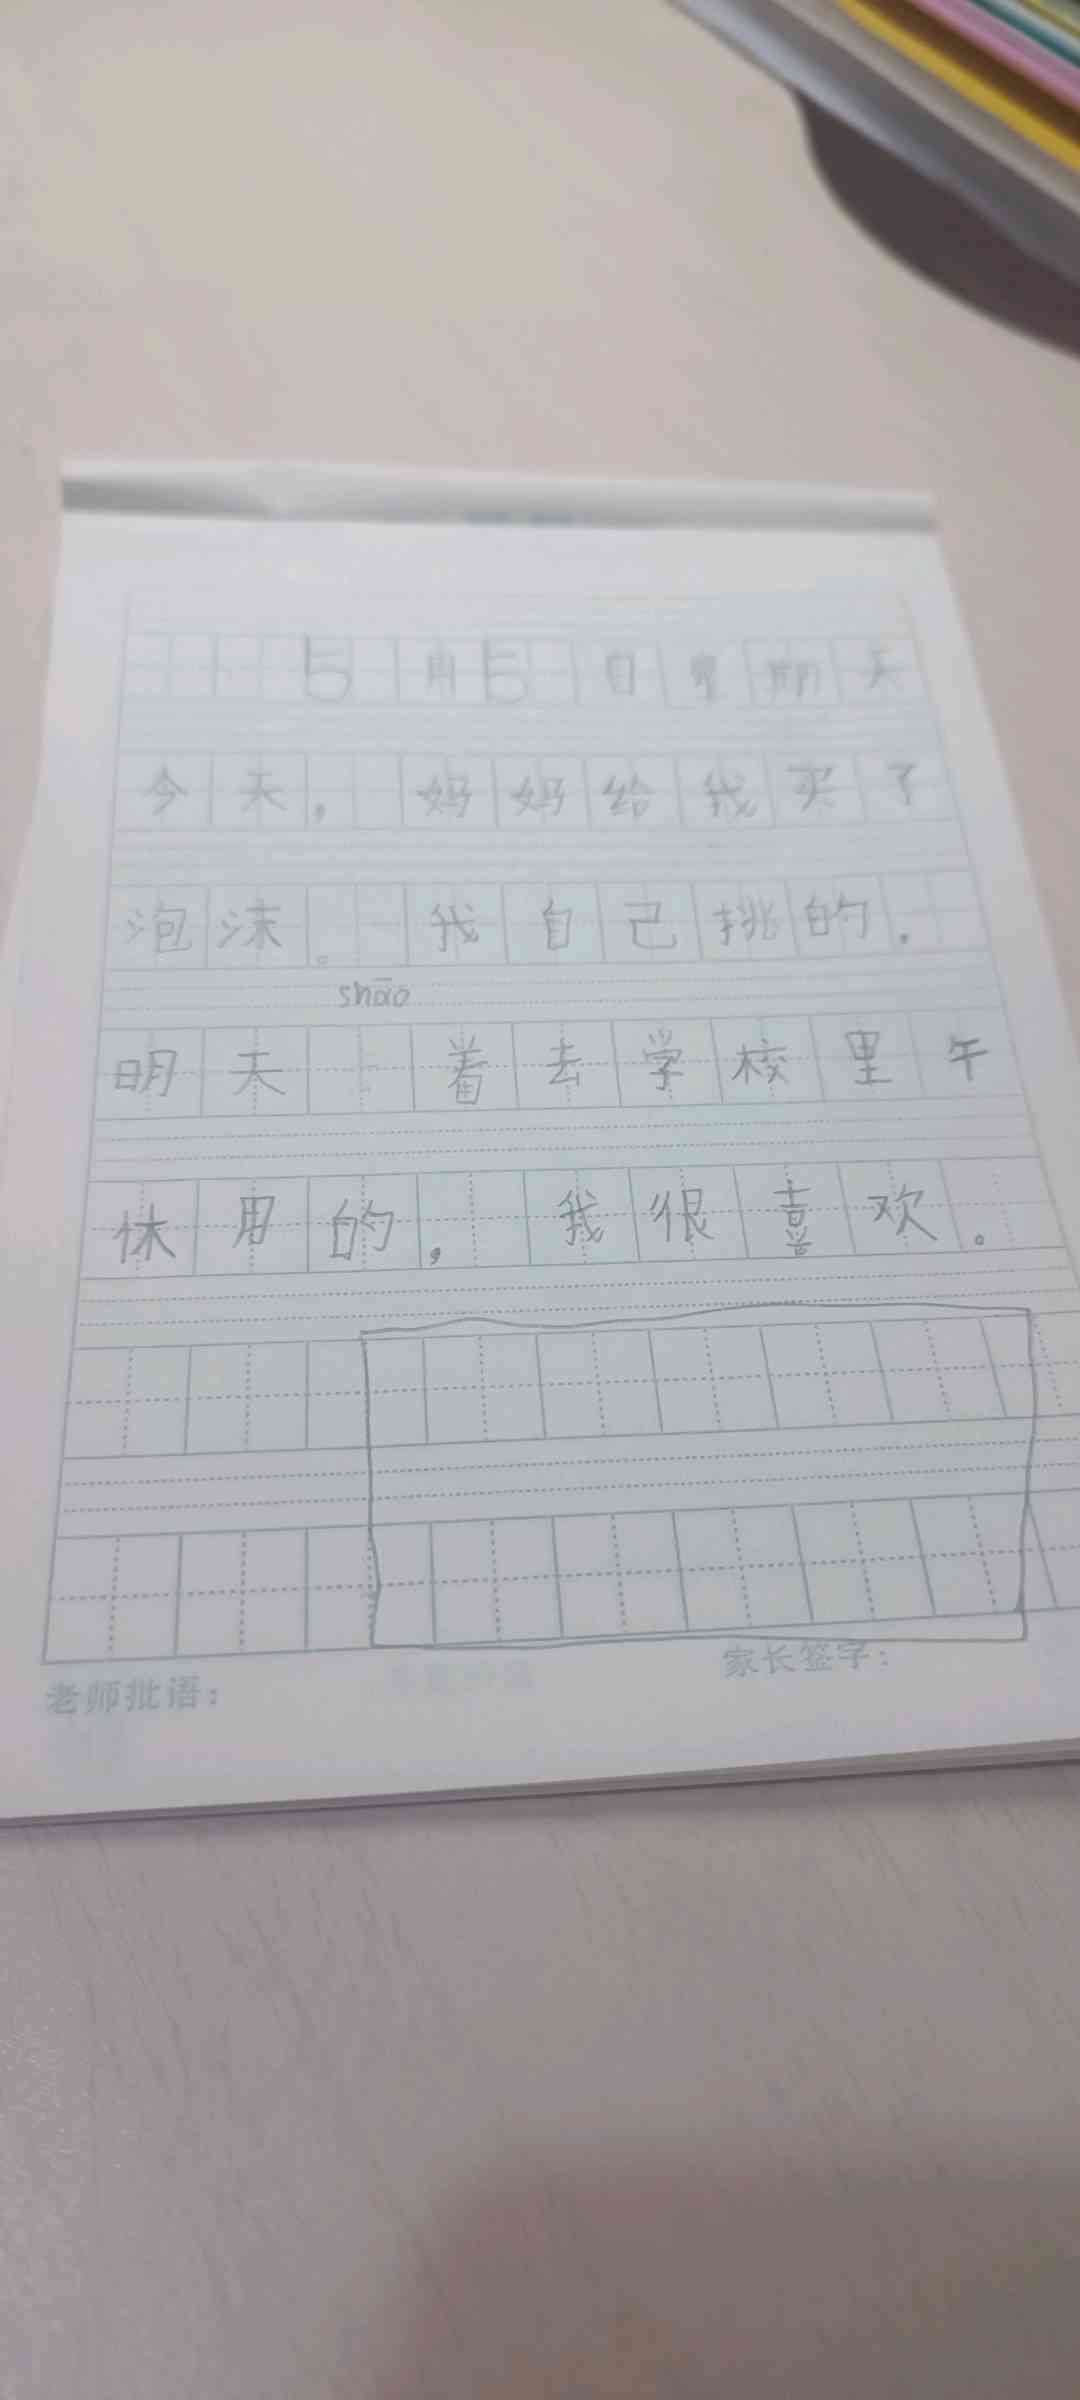 5月5日星期天
今天，妈妈给我买了
泡沫。我自己挑的，
shāo
明天 着去学校里午
休用的，我很喜欢。
老师批语：
家长签字：